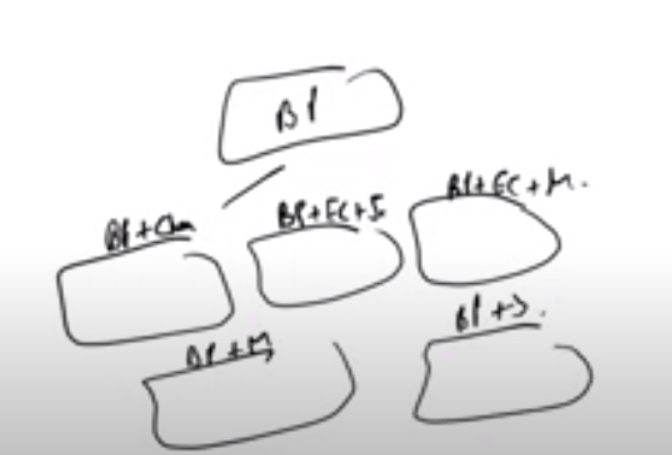 BP
BP + Cham
BP + EC + S
BP + EC + M.
BP + M
BP + S.